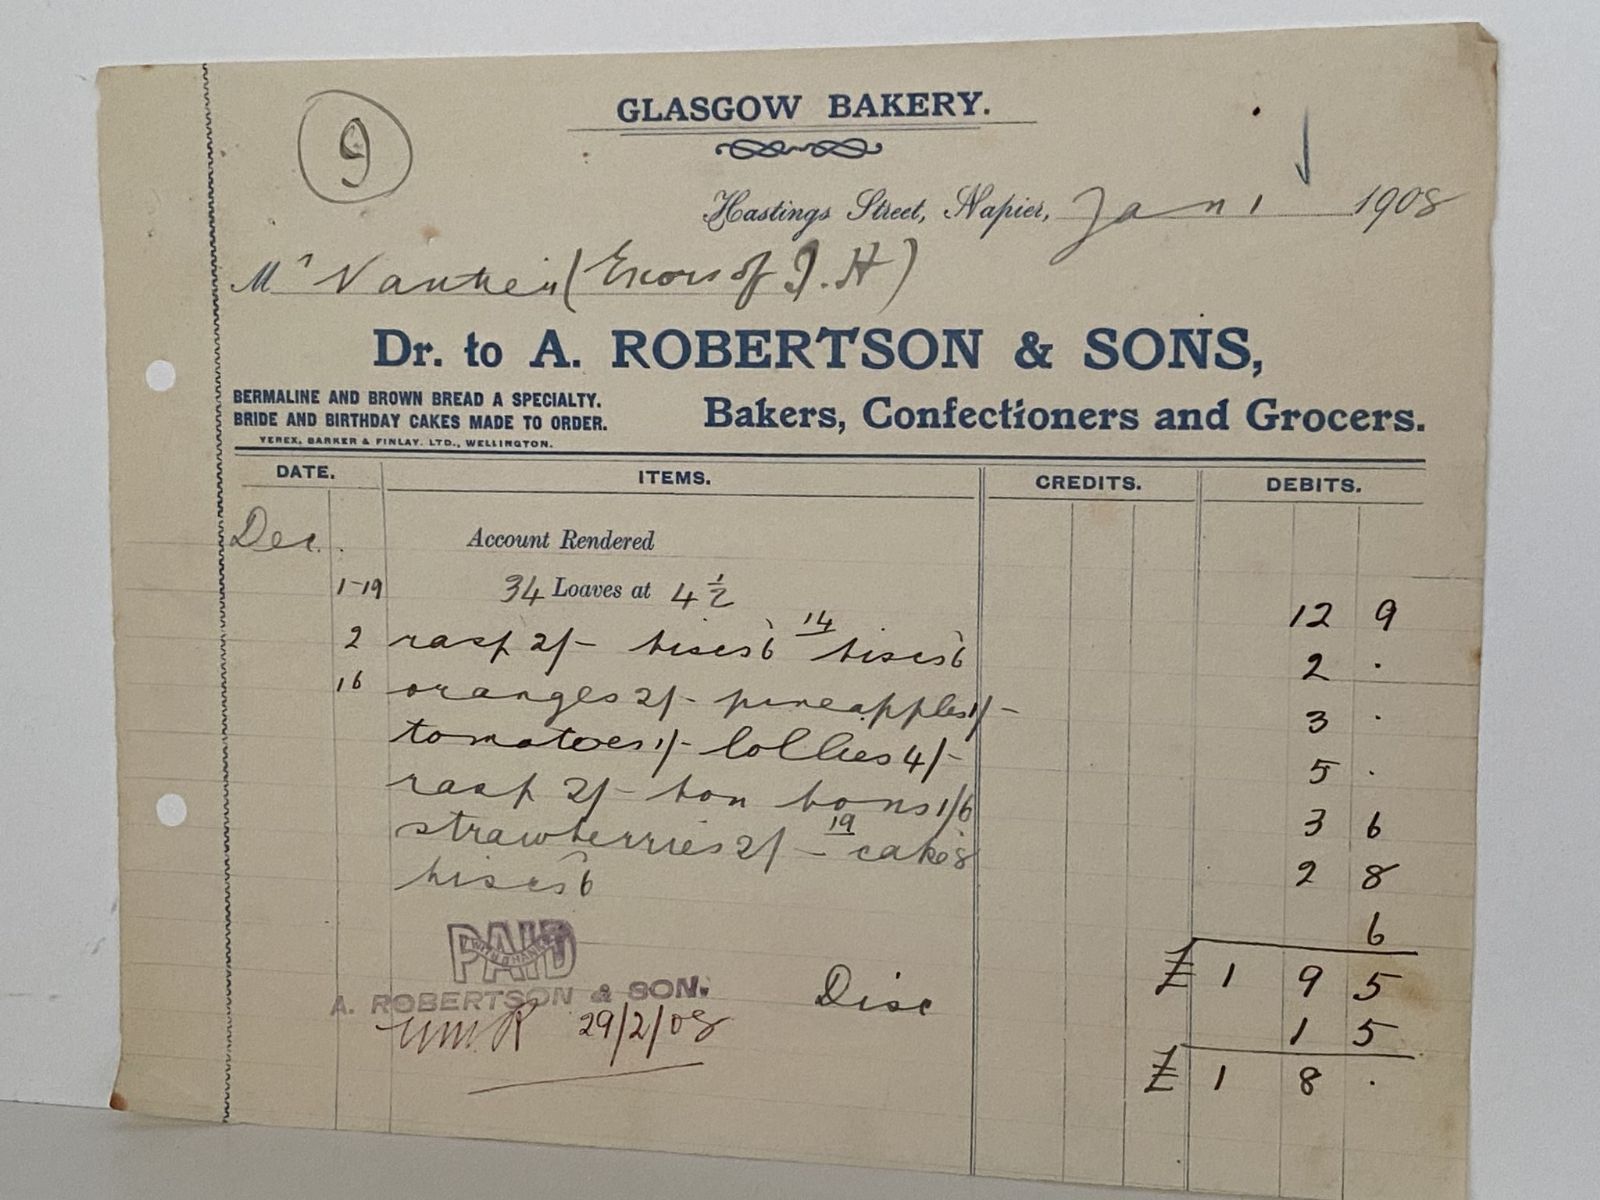 9
GLASGOW BAKERY.
Hastings Street, Napier, Jan 1 1908
Mr (Exors of J. H)
Dr. to A. ROBERTSON & SONS,
BERMALINE AND BROWN BREAD A SPECIALTY.
BRIDE AND BIRTHDAY CAKES MADE TO ORDER.
YEREX, BARKER & FINLAY. LTD., WELLINGTON.
Bakers, Confectioners and Grocers.
DATE. ITEMS. CREDITS. DEBITS.
Dec. Account Rendered
1-19 34 Loaves at 4 ½ 12 9
2 rasp 2/- biscs 6 14 biscs 6 2 .
16 oranges 2/- pineapples 1/- 3 .
tomatoes 1/- lollies 4/- 5 .
rasp 2/- bon bons 1/6 3 6
strawberries 2/- 19 cake 8 2 8
biscs 6 6
PAID
WITH THANKS
£ 1 9 5
A. ROBERTSON & SON.
Disc 1 5
29/2/08
£ 1 8 .